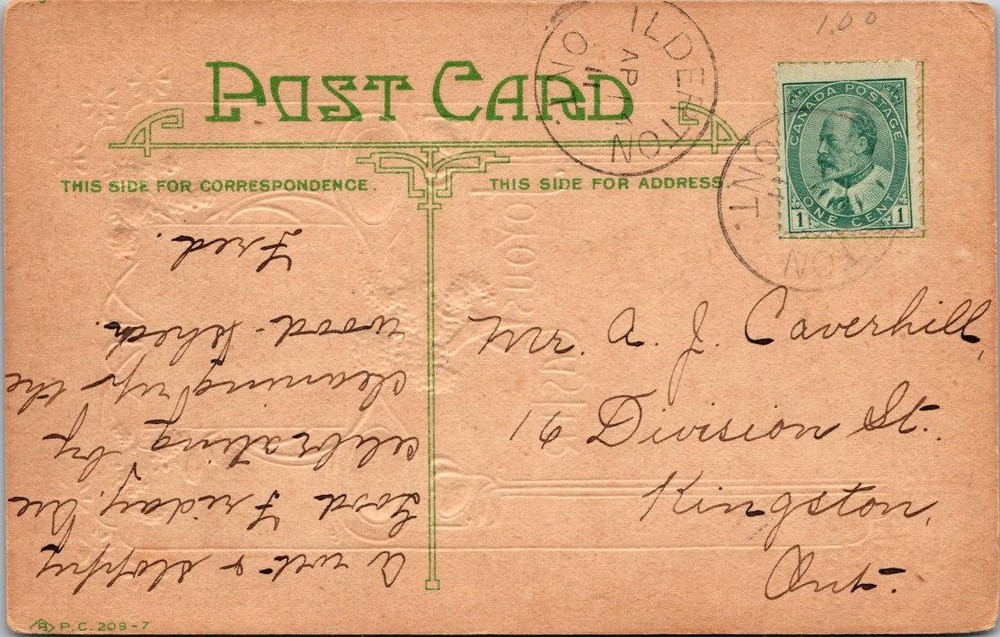 1.00
POST CARD
THIS SIDE FOR CORRESPONDENCE.
THIS SIDE FOR ADDRESS.
ILDERTON
AP 11
ONT
CANADA POSTAGE
ONE CENT
1 1
TON
ONT.
Mr. A. J. Caverhill,
16 Division St.
Kingston,
Ont.
A wet & sloppy
Good Friday. Are
celebrating by
cleaning up the
wood-shed.
Fred.
P.C. 209-7